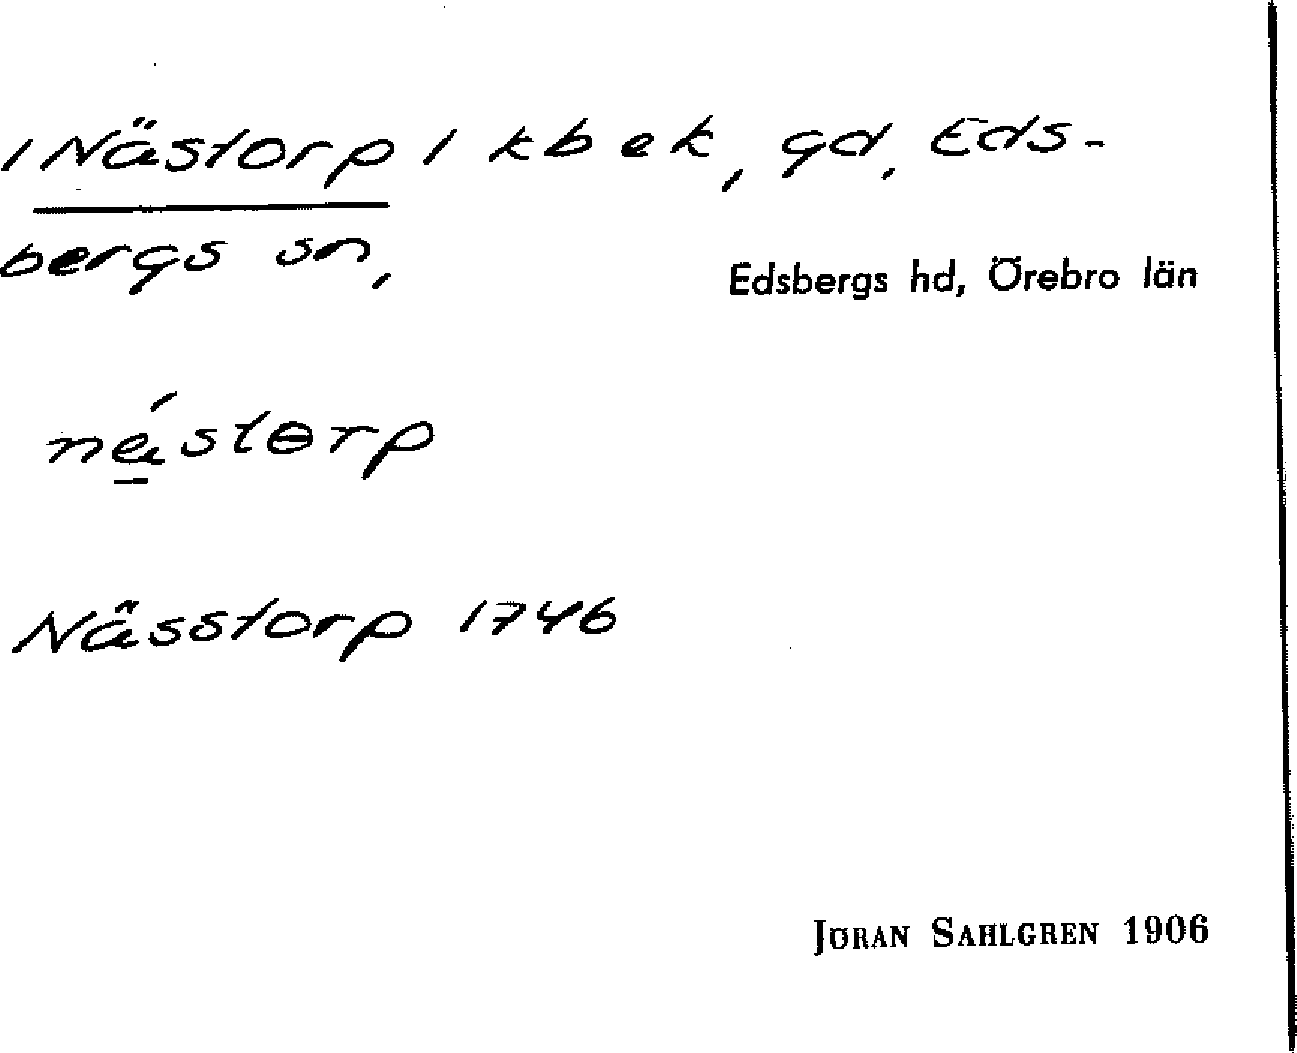 /Nästorp/ kbek, gd, Eds-
bergs sn,
Edsbergs hd, Örebro län
nǽ̲stɵrp
Nässtorp 1746
JÖRAN SAHLGREN 1906